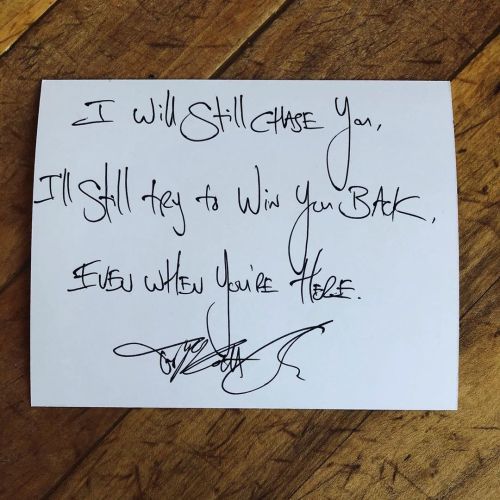 I will Still CHASE You,
I'll Still try to Win You BACK,
EVEN WHEN YOU'RE HERE.